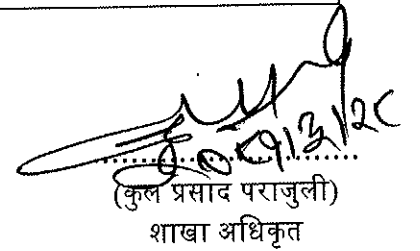 २०८१/३/२८
(कुल प्रसाद पराजुली)
शाखा अधिकृत